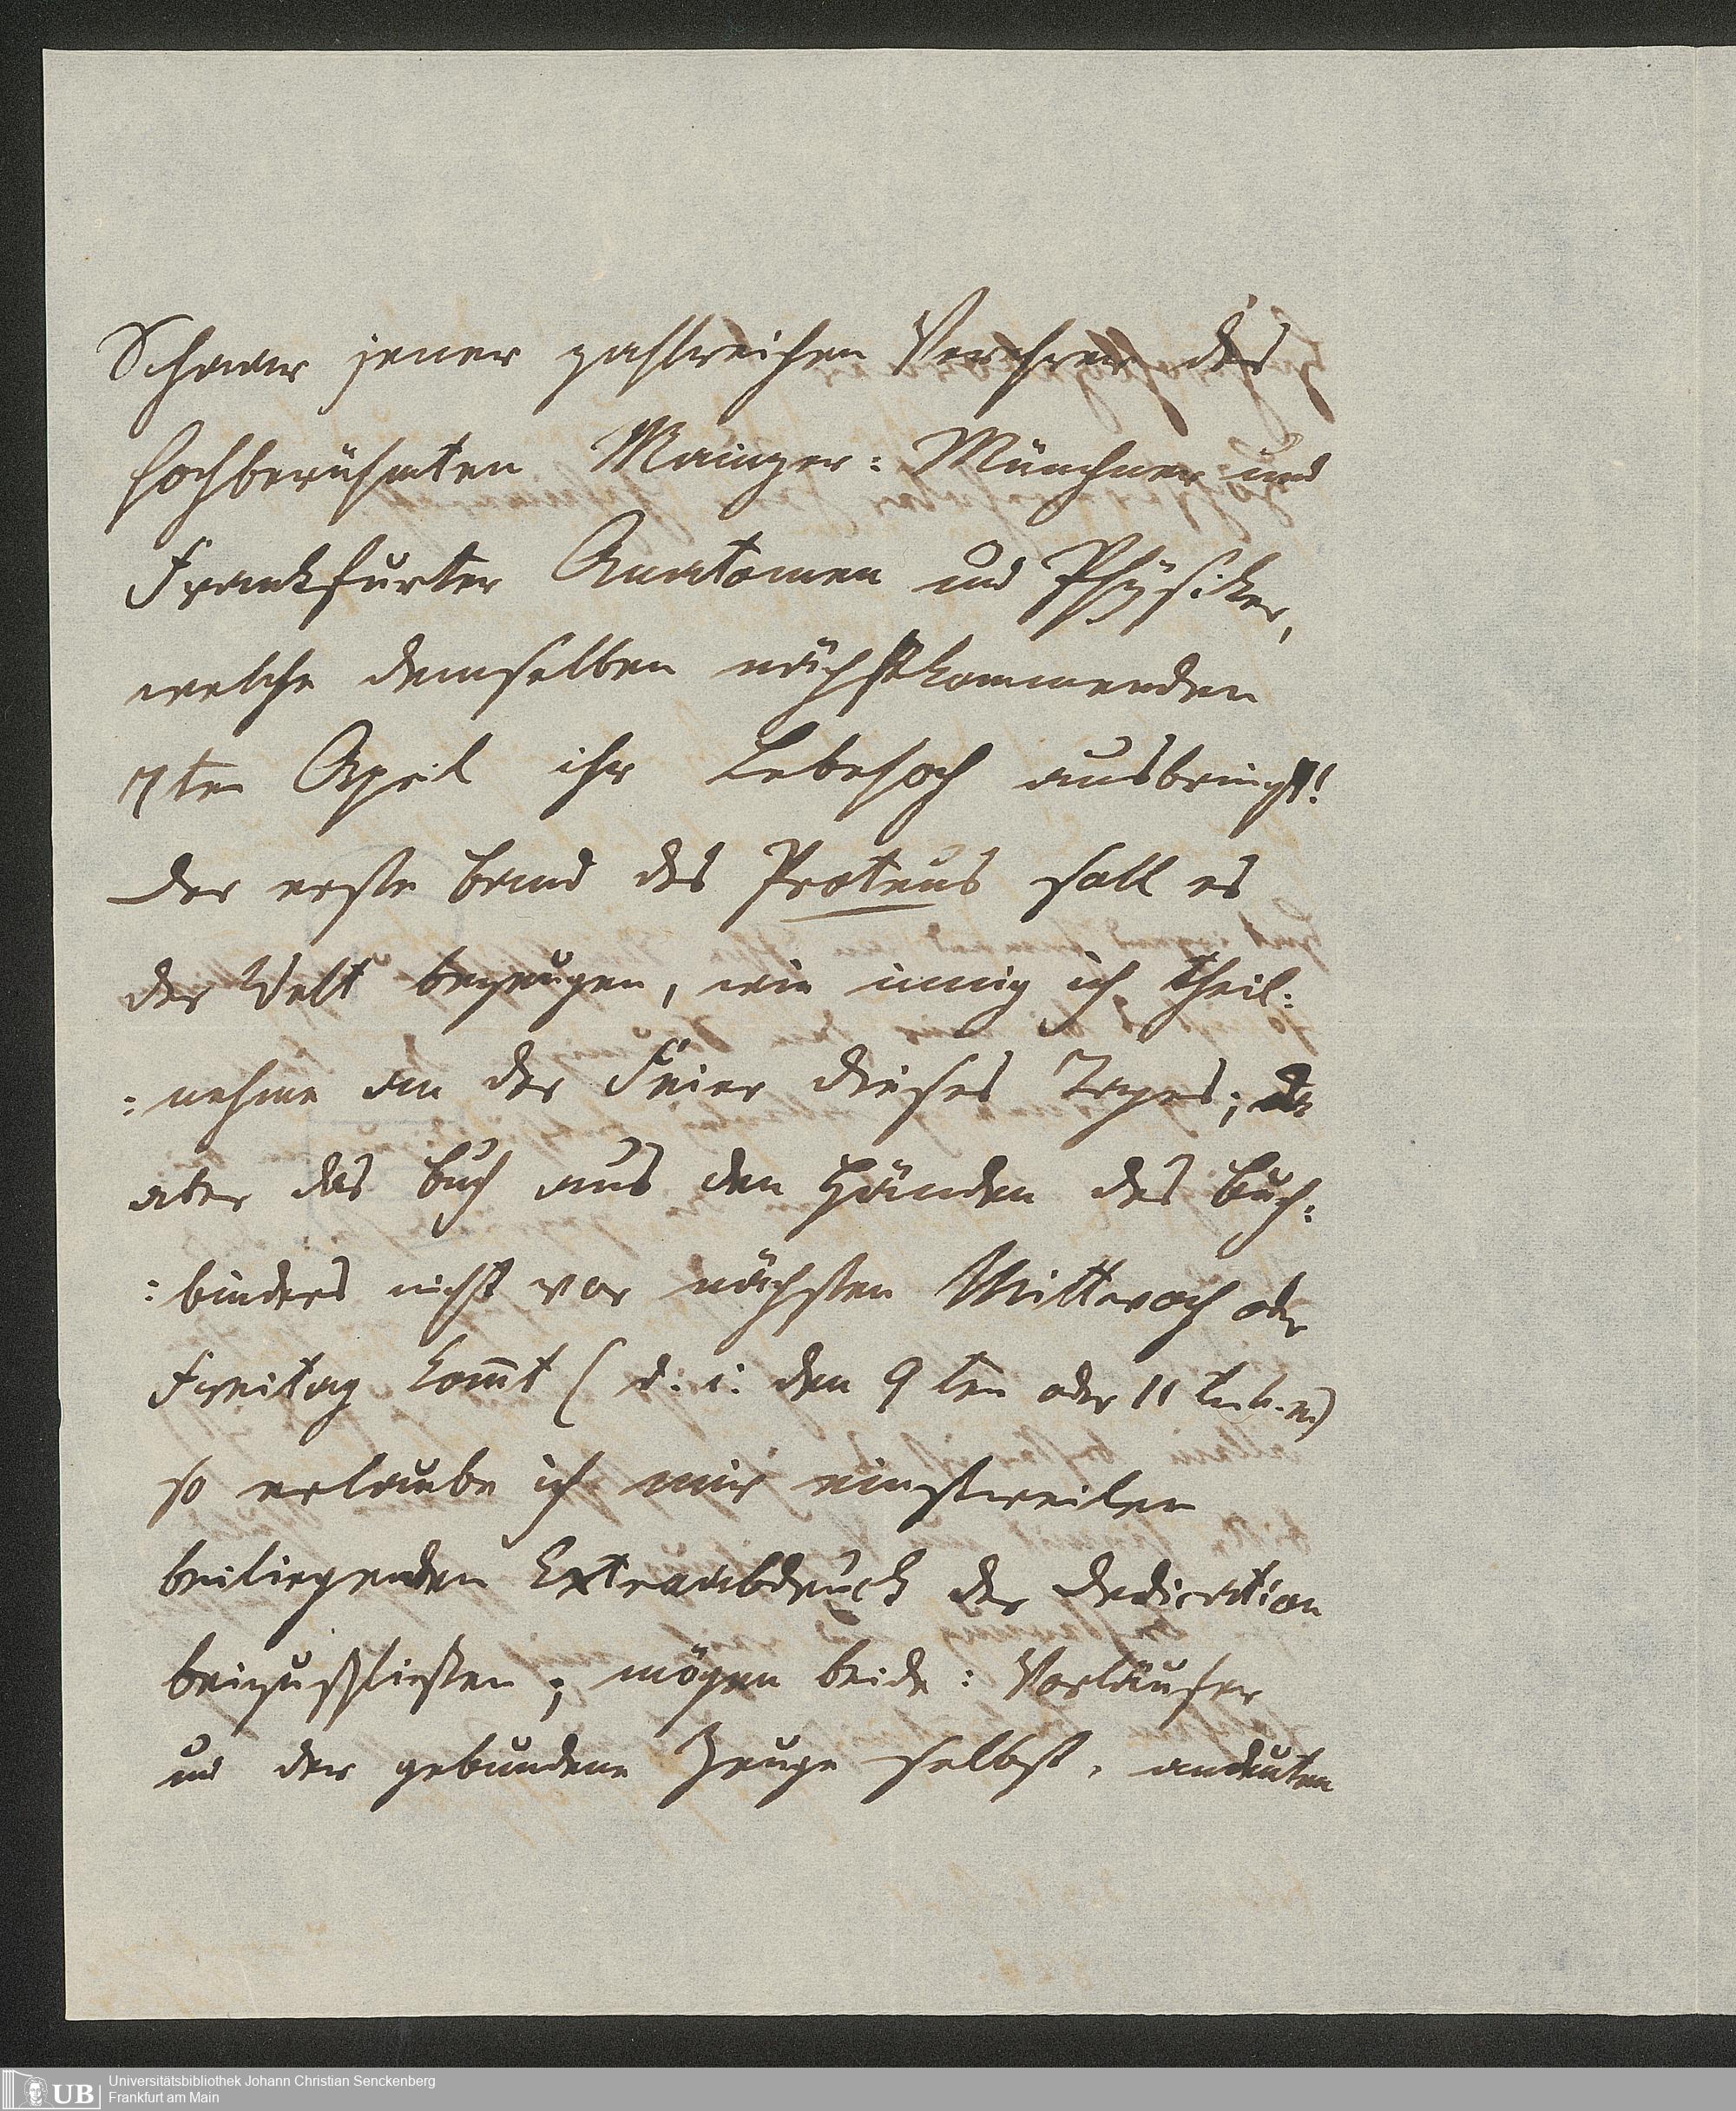 Schaar jener zahlreichen Verehrer des
hochberühmten Mainzer: Münchner und
Frankfurter Anatomen und Physiker,
welche demselben nächstkommenden
7ten April ihr Lebehoch ausbringt!
Der erste Band des Proteus soll es
der Welt bezeugen, wie innig ich theil:
:nehme an der Feier dieses Tages; da
aber das Buch aus den Händen des Buch:
:binders nicht vor nächsten Mittwoch oder
Freitag kom̄t (d. i. den 9ten oder 11ten
so erlaube ich mir einstweilen
beiliegenden Extraabdruck der Dedication
beizuschließen; mögen beide: Vorläufer
und der gebundene Zeuge selbst, andeuten
Universitätsbibliothek Johann Christian Senckenberg
Frankfurt am Main
UB